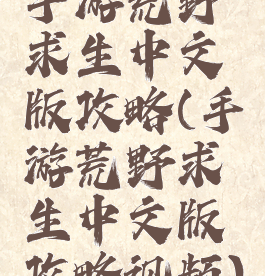 手游荒野
求生中文
版攻略(手
游荒野求
生中文版
攻略视频)